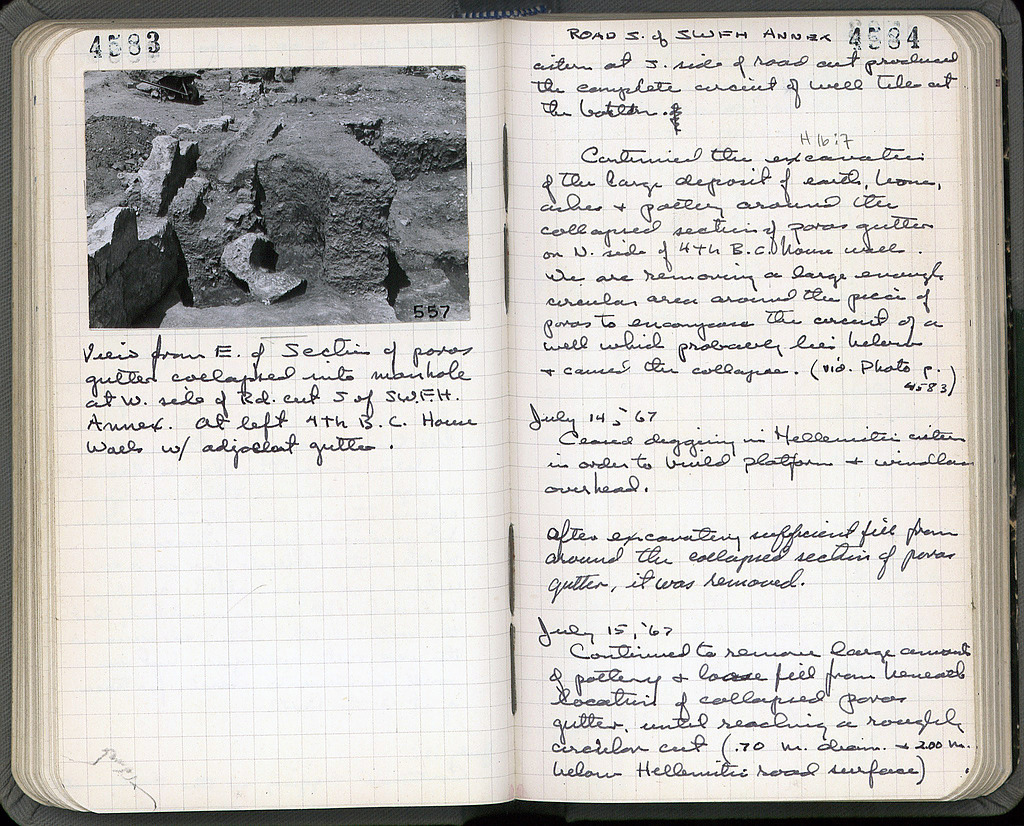 4583
557
View from E. of Section of poros
gutter collapsed into manhole
at W. side of Rd. cut S of SWFH.
Annex. at left 4th B.C. House
Walls w/ adjacent gutter.
ROAD S. of SWFH ANNEX 4584
cistern at S. side of road cut produced
the complete circuit of well tile at
the bottom.
H 16:7
Continued the excavation
of the large deposit of earth, bone,
ashes + pottery around the
collapsed section of poros gutter
on N. side of 4th B.C. house wall.
We are removing a large enough
circular area around the piece of
poros to encompass the circuit of a
well which probably lies below
+ caused the collapse. (vid. Photo p.
4583)
July 14, '67
Ceased digging in Hellenistic cistern
in order to build platform + windlass
overhead.
After excavating sufficient fill from
around the collapsed section of poros
gutter, it was removed.
July 15, '67
Continued to remove large amounts
of pottery + loose fill from beneath
location of collapsed poros
gutter, until reaching a roughly
circular cut (.70 m. diam. + 2.00 m.
below Hellenistic road surface)